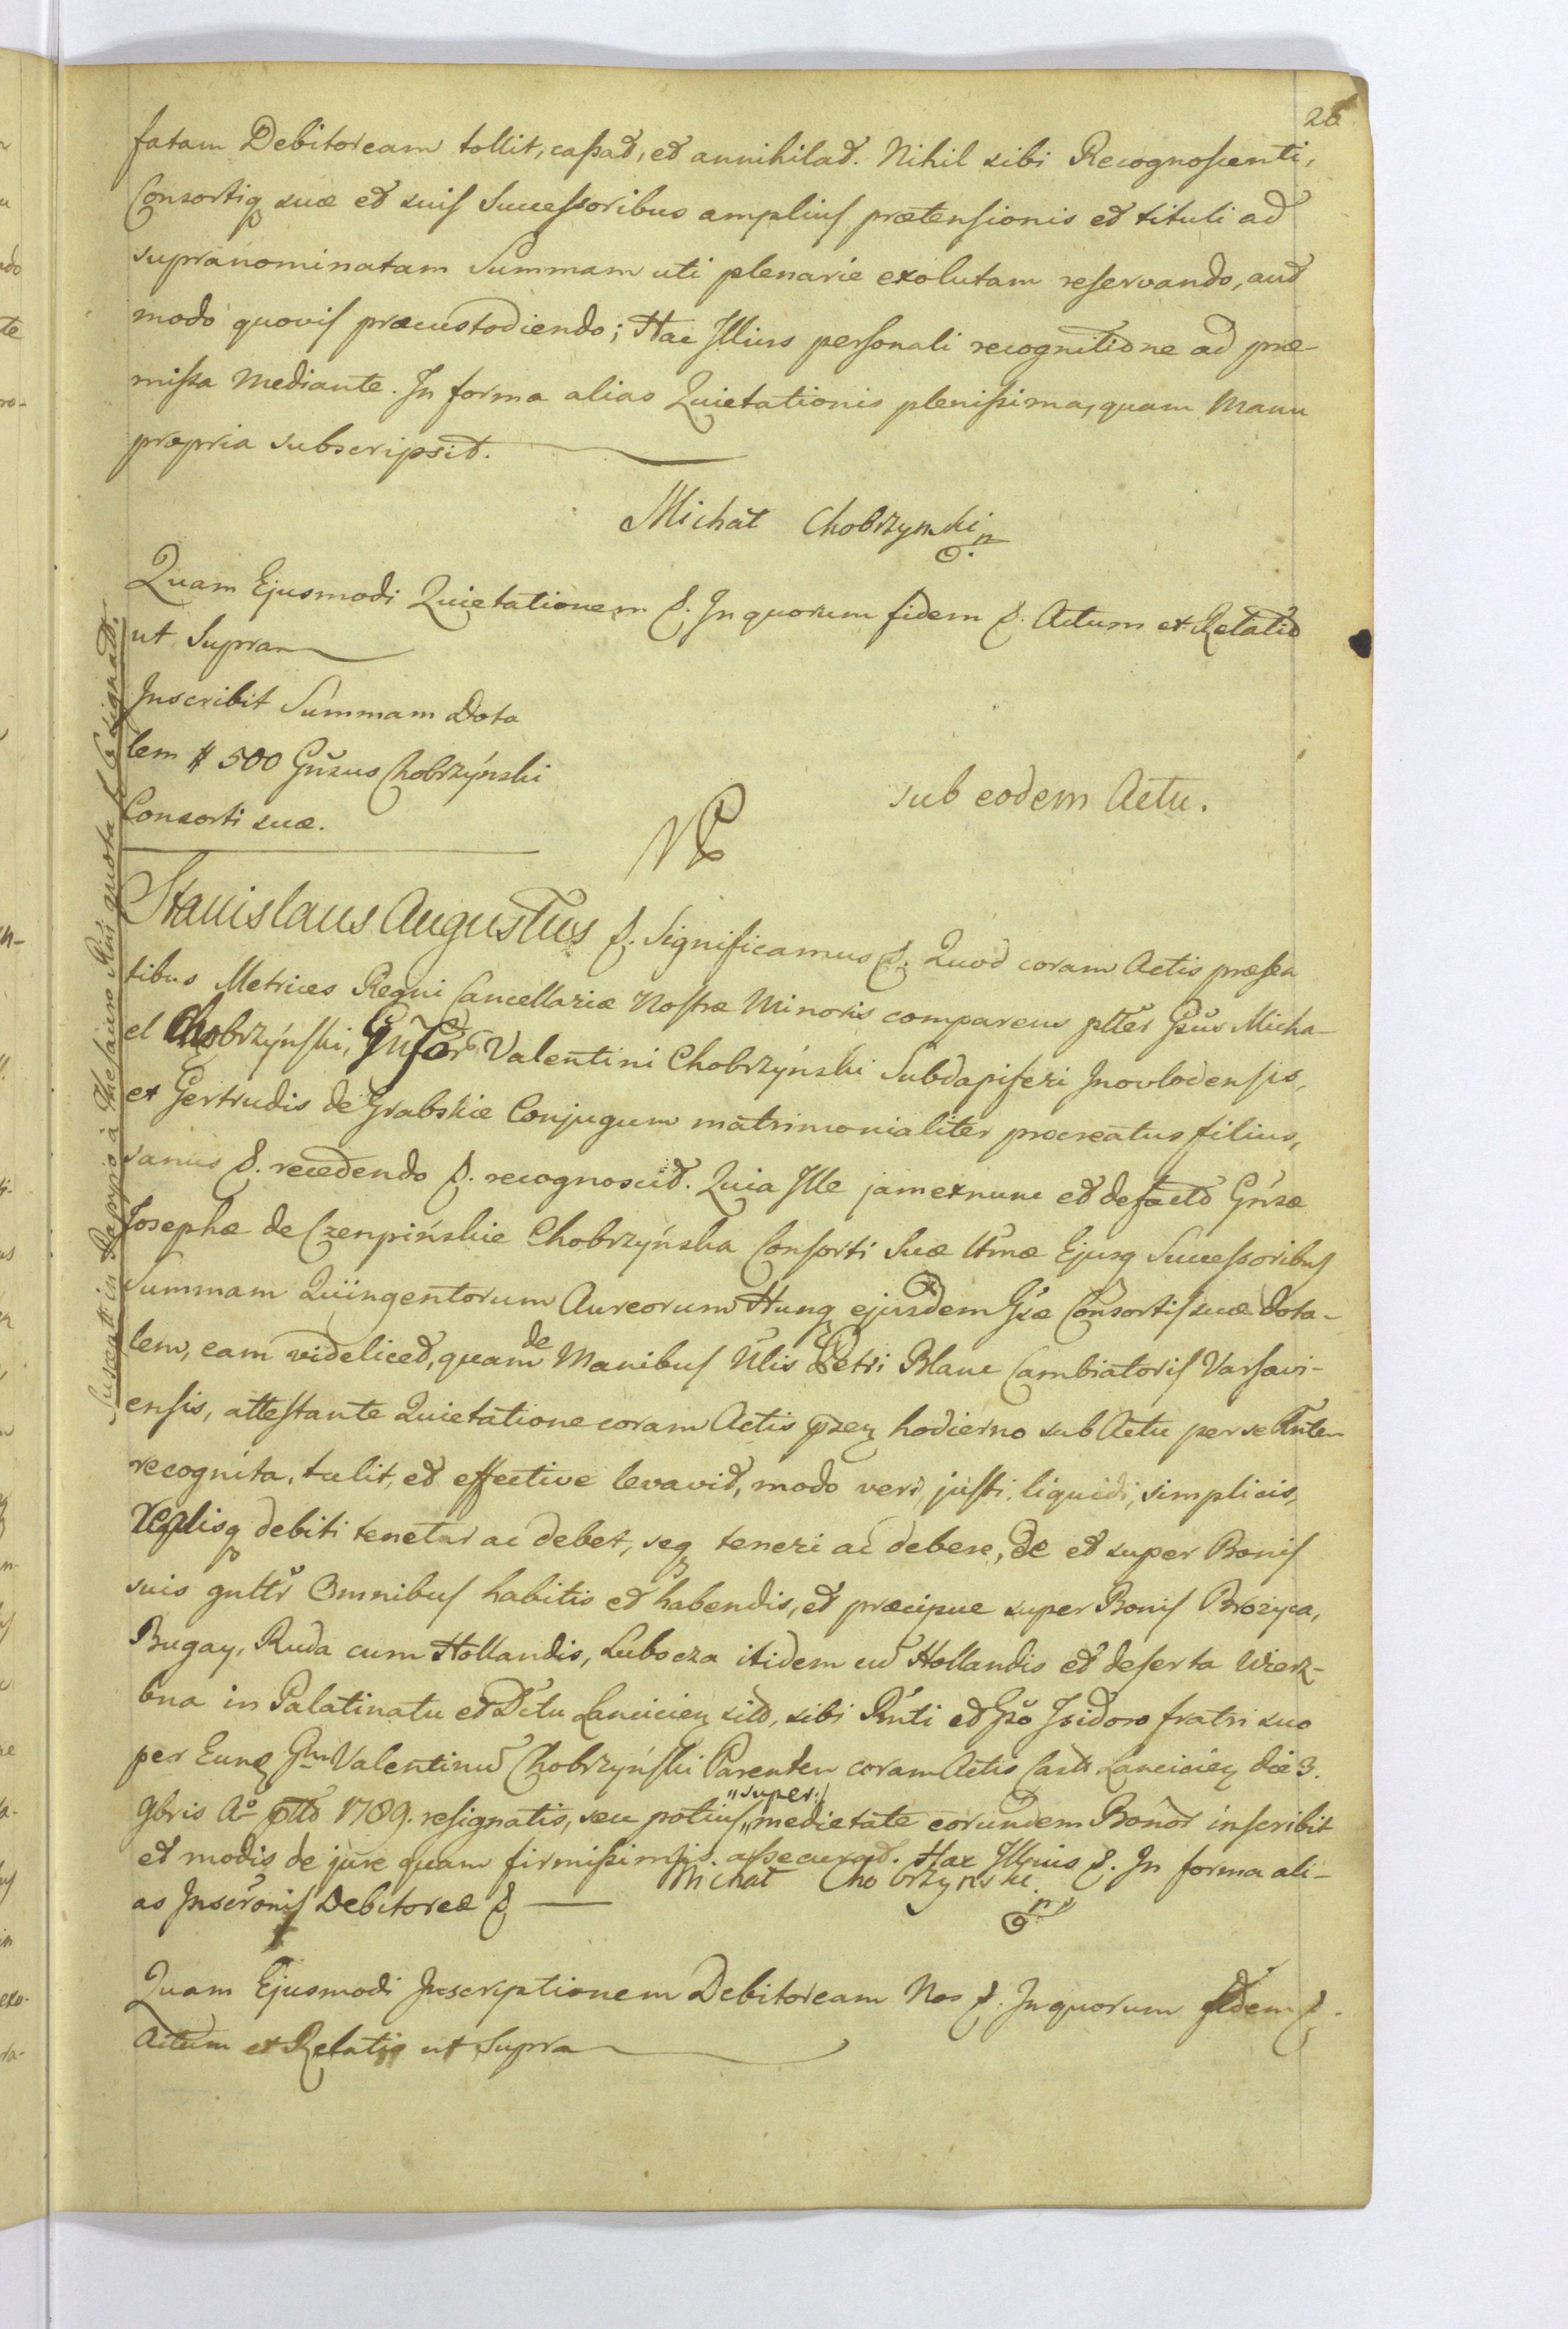 26
fatam Debitoream tollit, cassat, et annihilat. Nihil sibi Recognoscenti,
Consortiq suæ et suis Successoribus amplius prætensionis et tituli ad
supranominatam Summam uti plenarie exolutam reservando, aut
modo quovis præcustodiendo; Hac Illius personali recognitione ad præ-
missa Mediante. In forma alias Quietationis plenissima, quam Manu
propria subscripsit.
Michał Chobrzynski
Quam Ejusmodi Quietationem &. In quorum fidem &. Actum et Relatio
ut Supra
Inscribit Summam Dota
lem # 500 Gnsus Chobrzyński
Consorti suæ.
sub eodem Actu.
Stanislaus Augustus &. Significamus &. Quod coram Actis præsen
tibus Metrices Regni Cancellariæ Nostræ Minoris comparens ptter Gsus Micha-
el Chobrzyński, Gnsor Valentini Chobrzyński Subdapiferi Inovlodensis,
et Gertrudis de Grabskie Conjugum matrimonialiter procreatus filius,
sanus &. recedendo &. recognoscit. Quia Ille jam exnunc et defacto Gnsæ
Josephæ de Czenpińskie Chobrzyńska Consorti Suæ Ctmæ Ejusq Successoribus
Summam Quingentorum Aureorum Hung ejusdem Gsæ Consortis suæ dota-
lem, eam videlicet, quam de Manibus Nlis Petri Blanc Cambiatoris Varsavi-
ensis, attestante Quietatione coram Actis przen hodierno sub Actu per se Rnten
recognita, tulit, et effective levavit, modo veri, justi, liquidi, simplicis,
realisq debiti tenetur ac debet, seq teneri ac debere, de et super Bonis
suis gnltr Omnibus habitis et habendis, et præcipue super Bonis Brozyca,
Bugay, Ruda cum Hollandis, Lubocza itidem cu Hollandis et deserta Wierz-
bna in Palatinatu et Dctu Lancicien sito, sibi Rnti et Gso Isidoro fratri suo
per Eund Gm Valentinu Chobrzyński Parentem coram Actis Castr Lancicien die 3.
9bris Ao ptto 1789. resignatis, seu potius „super:/ medietate eorundem Bonor inscribit
et modis de jure quam firmissimis assecurat. Hac Illius &. In forma ali-
as Inscronis Debitoreæ &
Michał Chobrzynski
Quam Ejusmodi Inscriptionem Debitoream Nos &. In quorum fidem &.
Actum et Relatio ut Supra